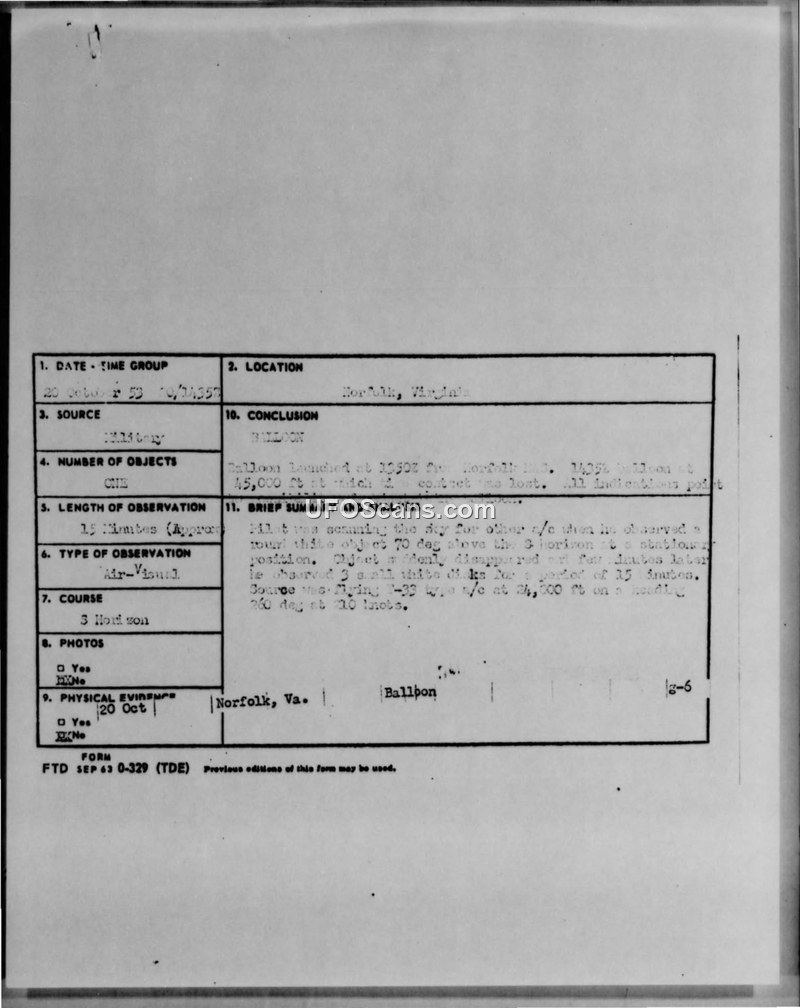 1. DATE - TIME GROUP
20 October 53 20/1435Z
2. LOCATION
Norfolk, Virginia
3. SOURCE
Military
10. CONCLUSION
BALLOON
4. NUMBER OF OBJECTS
ONE
Balloon launched at 1350Z from Norfolk 1435Z balloon at
45,000 ft at which time contact was lost. All indications point
5. LENGTH OF OBSERVATION
15 Minutes (Approx)
11. BRIEF SUMMARY AND
UFOScans.com
Pilot was scanning the sky for other a/c when he observed a
round white object 70 deg above the S horizon at a stationary
position. Object suddenly disappeared and few minutes later
he observed 3 small white disks for a period of 15 minutes.
Source was flying T-33 type a/c at 24,000 ft on a heading
260 deg at knots.
6. TYPE OF OBSERVATION
Air-Visual
7. COURSE
S Horizon
8. PHOTOS
□ Yes
XX No
9. PHYSICAL EVIDENCE
□ Yes
XX No
20 Oct Norfolk, Va. Balloon g-6
FORM
FTD SEP 63 0-329 (TDE) Previous editions of this form may be used.